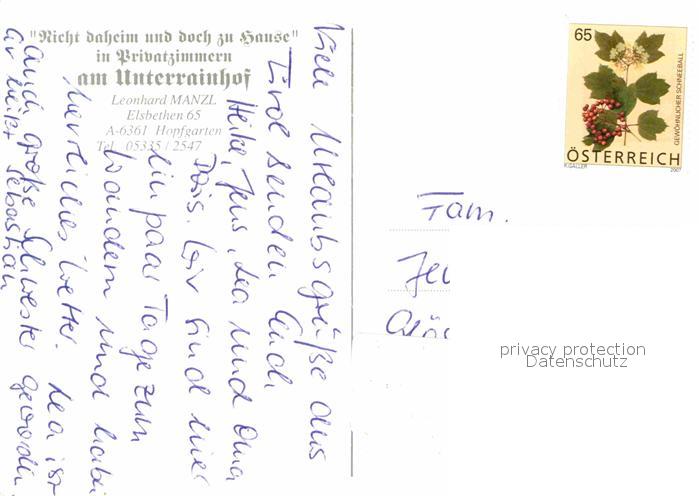 "Nicht daheim und doch zu Hause"
in Privatzimmern
am Unterrainhof
Leonhard MANZL
Elsbethen 65
A-6361 Hopfgarten
Tel. 05335 / 2547
Viele Urlaubsgrüße aus
Tirol senden Euch
Heike, Jens, Lea und Oma
Doris. Wir sind hier
ein paar Tage zum
Wandern und haben
herrliches Wetter. Lea ist
auch große Schwester geworden.
Er heißt Sebastian
65
GEWÖHNLICHER SCHNEEBALL
ÖSTERREICH
2007
Fam.
privacy protection
Datenschutz